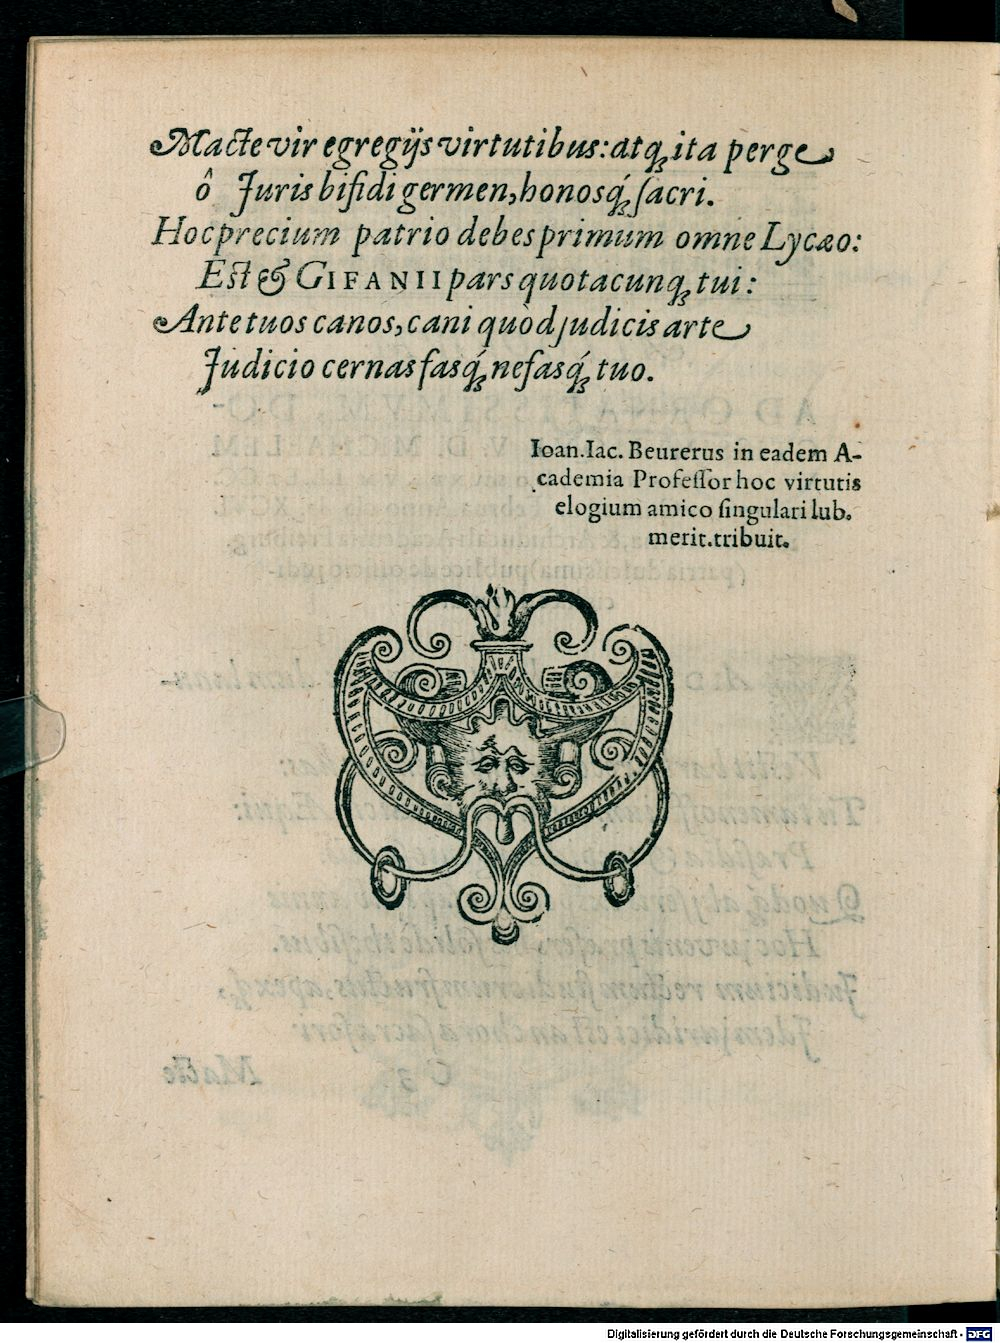 Macte vir egregijs virtutibus: atq́ ita perge
ô Juris bifidi germen, honosq́ ſacri.
Hoc precium patrio debes primum omne Lycæo:
Est & GIFANII pars quotacunq tui:
Ante tuos canos, cani quòd judicis arte
Judicio cernas fasq́ nefasq́ tuo.
Ioan. Iac. Beurerus in eadem A-
cademia Profeſſor hoc virtutis
elogium amico ſingulari lub.
merit. tribuit.
Digitalisierung gefördert durch die Deutsche Forschungsgemeinschaft - DFG